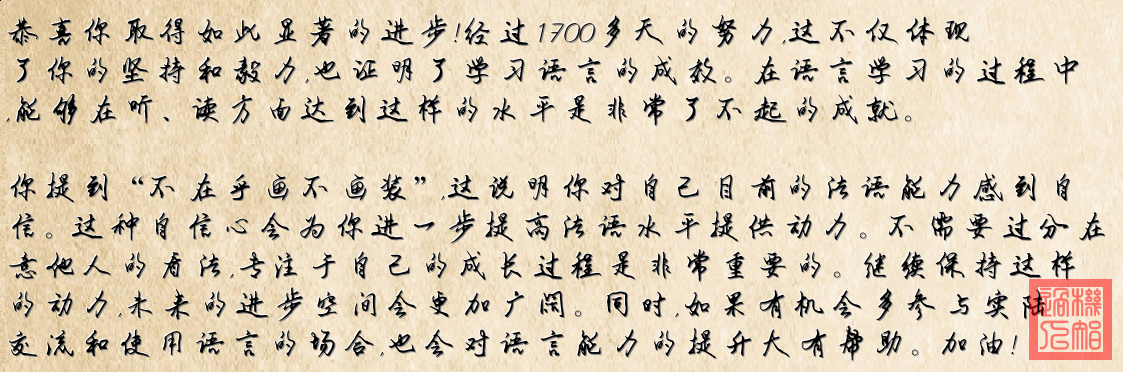 恭喜你取得如此显著的进步!经过1700多天的努力,这不仅体现
了你的坚持和毅力,也证明了学习语言的成效。在语言学习的过程中
,能够在听、读方面达到这样的水平是非常了不起的成就。
你提到“不在乎画不画装”,这说明你对自己目前的法语能力感到自
信。这种自信心会为你进一步提高法语水平提供动力。不需要过分在
意他人的看法,专注于自己的成长过程是非常重要的。继续保持这样
的动力,未来的进步空间会更加广阔。同时,如果有机会多参与实际
交流和使用语言的场合,也会对语言能力的提升大有帮助。加油!